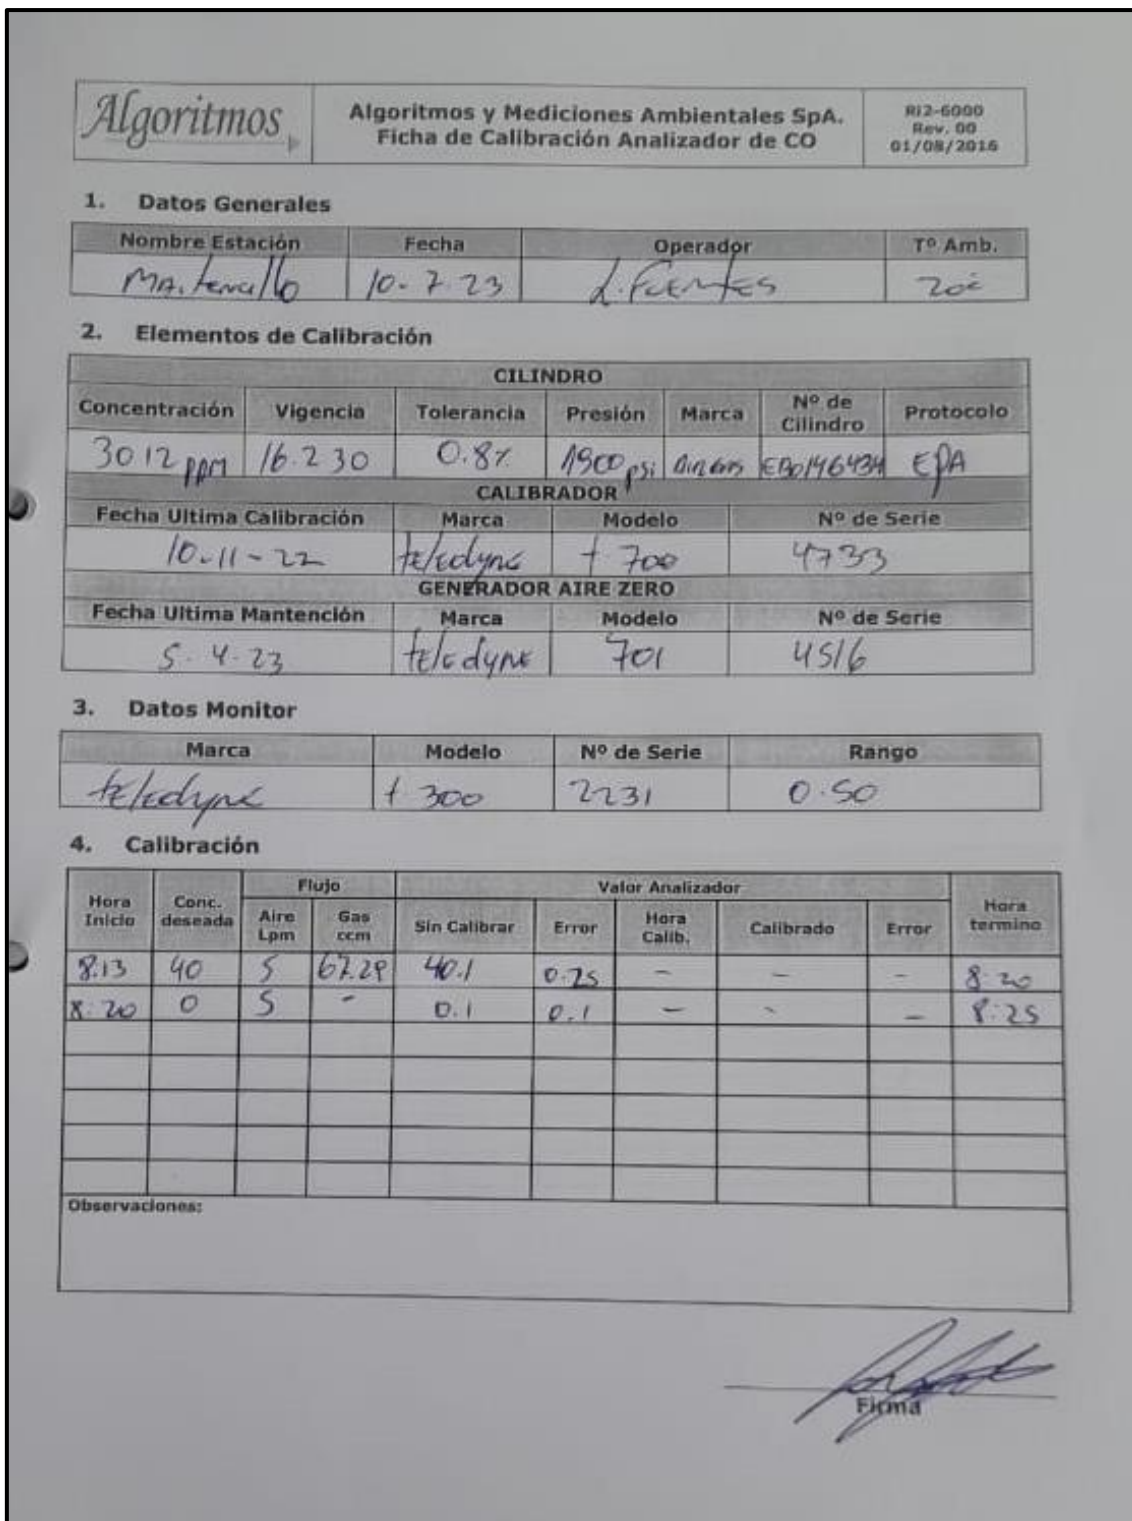 Algoritmos
Algoritmos y Mediciones Ambientales SpA.
Ficha de Calibración Analizador de CO
RI2-6000
Rev. 00
01/08/2016
1. Datos Generales
Nombre Estación Fecha Operador Tº Amb.
10-7-23 L. Fuentes
2. Elementos de Calibración
CILINDRO
Concentración Vigencia Tolerancia Presión Marca Nº de Cilindro Protocolo
3012 ppm 16.2.30 0.8% 1900 psi EB0146434 EPA
CALIBRADOR
Fecha Ultima Calibración Marca Modelo Nº de Serie
10-11-22 teledyne t 700 4733
GENERADOR AIRE ZERO
Fecha Ultima Mantención Marca Modelo Nº de Serie
5-4-23 teledyne 701 4516
3. Datos Monitor
Marca Modelo Nº de Serie Rango
teledyne t 300 2231 0-50
4. Calibración
Hora Inicio Conc. deseada Flujo Valor Analizador Hora termino
Aire Lpm Gas ccm Sin Calibrar Error Hora Calib. Calibrado Error
8:13 40 5 67.29 40.1 0.25 - - - 8:20
8:20 0 5 - 0.1 0.1 - - - 8:25
Observaciones:
Firma